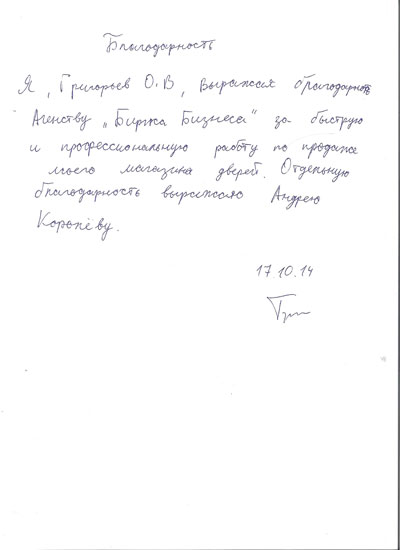 Благодарность
Я, Григорьев О.В, выражаю благодарность
Агенству „Биржа Бизнеса“ за быструю
и профессиональную работу по продаже
моего магазина дверей. Отдельную
благодарность выражаю Андрею
Королёву.
17.10.14